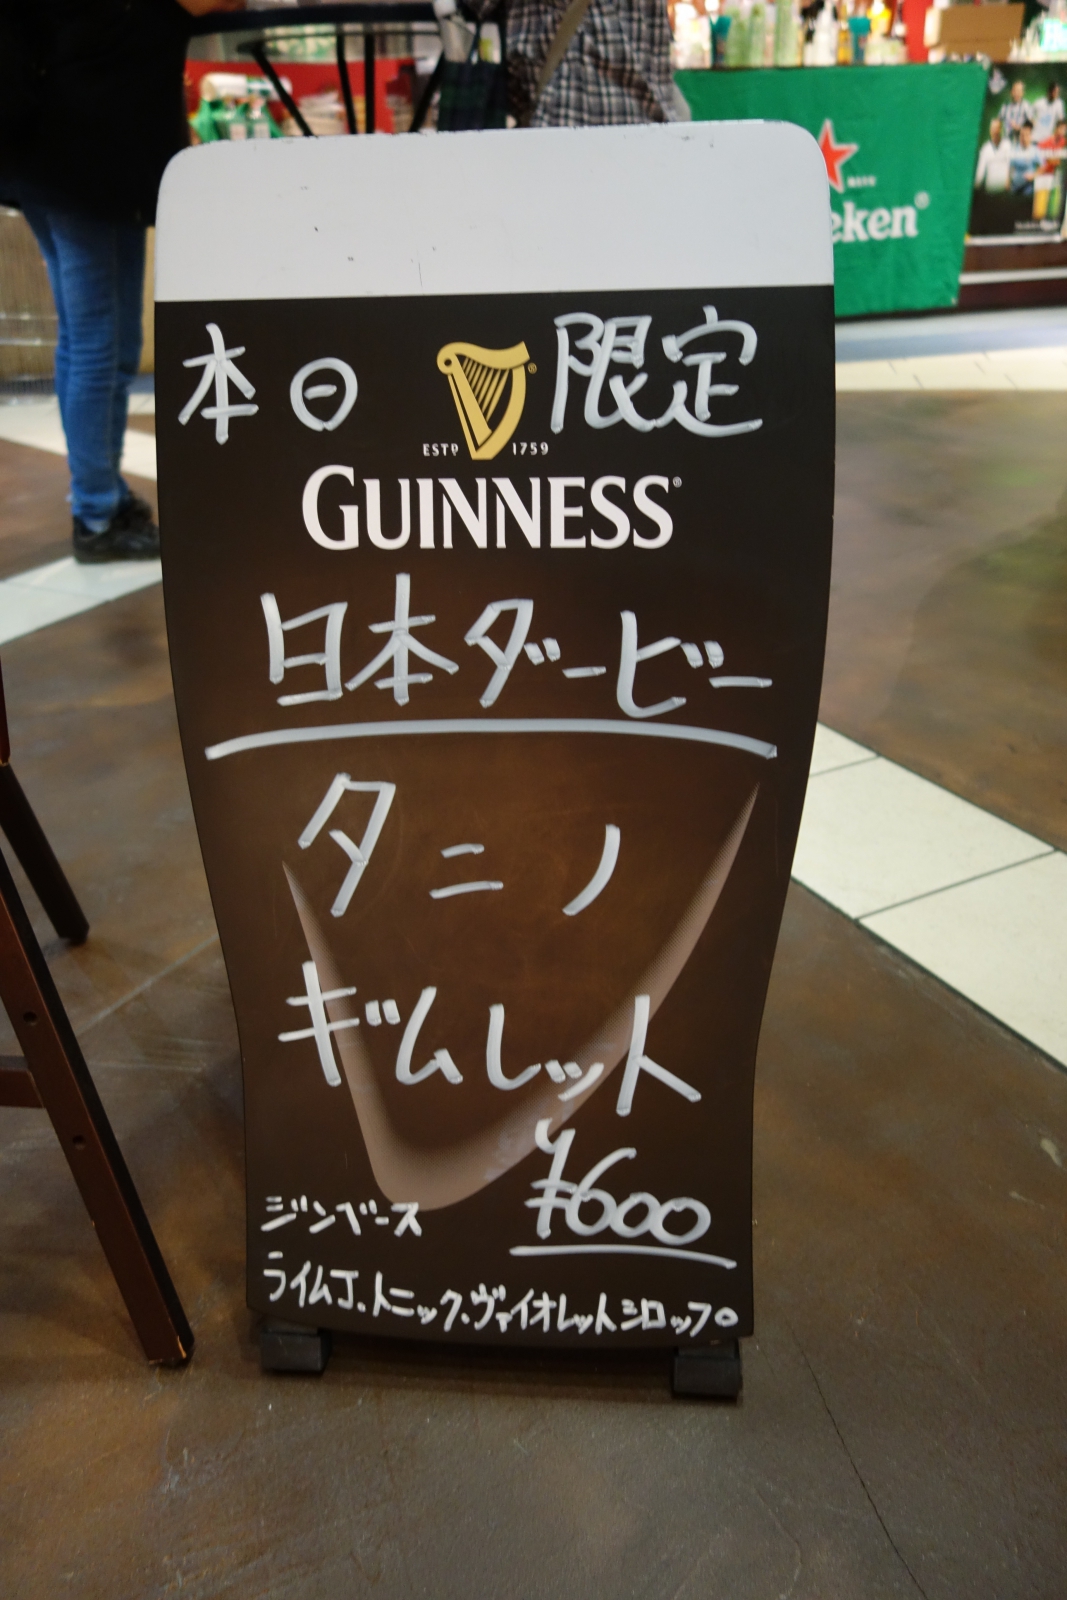 本日 限定
ESTD 1759
GUINNESS®
日本ダービー
タニノ
ギムレット
¥600
ジンベース
ライムJ.トニック.ヴァイオレットシロップ
eken®